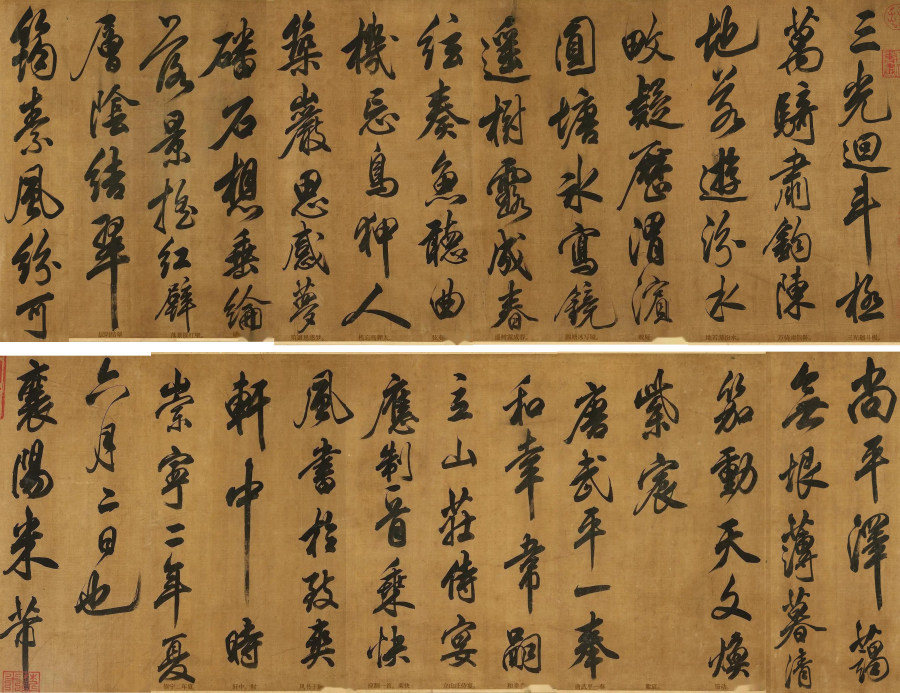 三光迴斗極
萬騎肅鉤陳
地若遊汾水
畋疑歷渭濱
圓塘冰寫鏡
遥樹露成春
弦奏魚聽曲
機忘鳥狎人
築巖思感夢
磻石想垂綸
落景搖紅壁
層陰結翠
筠素風紛可
尚平澤藹
無垠薄暮清
笳動天文煥
紫宸
唐武平一奉
和幸韋嗣
立山莊侍宴
應制一首乘快
風書於致爽
軒中時
崇寧二年夏
六月二日也
襄陽米芾